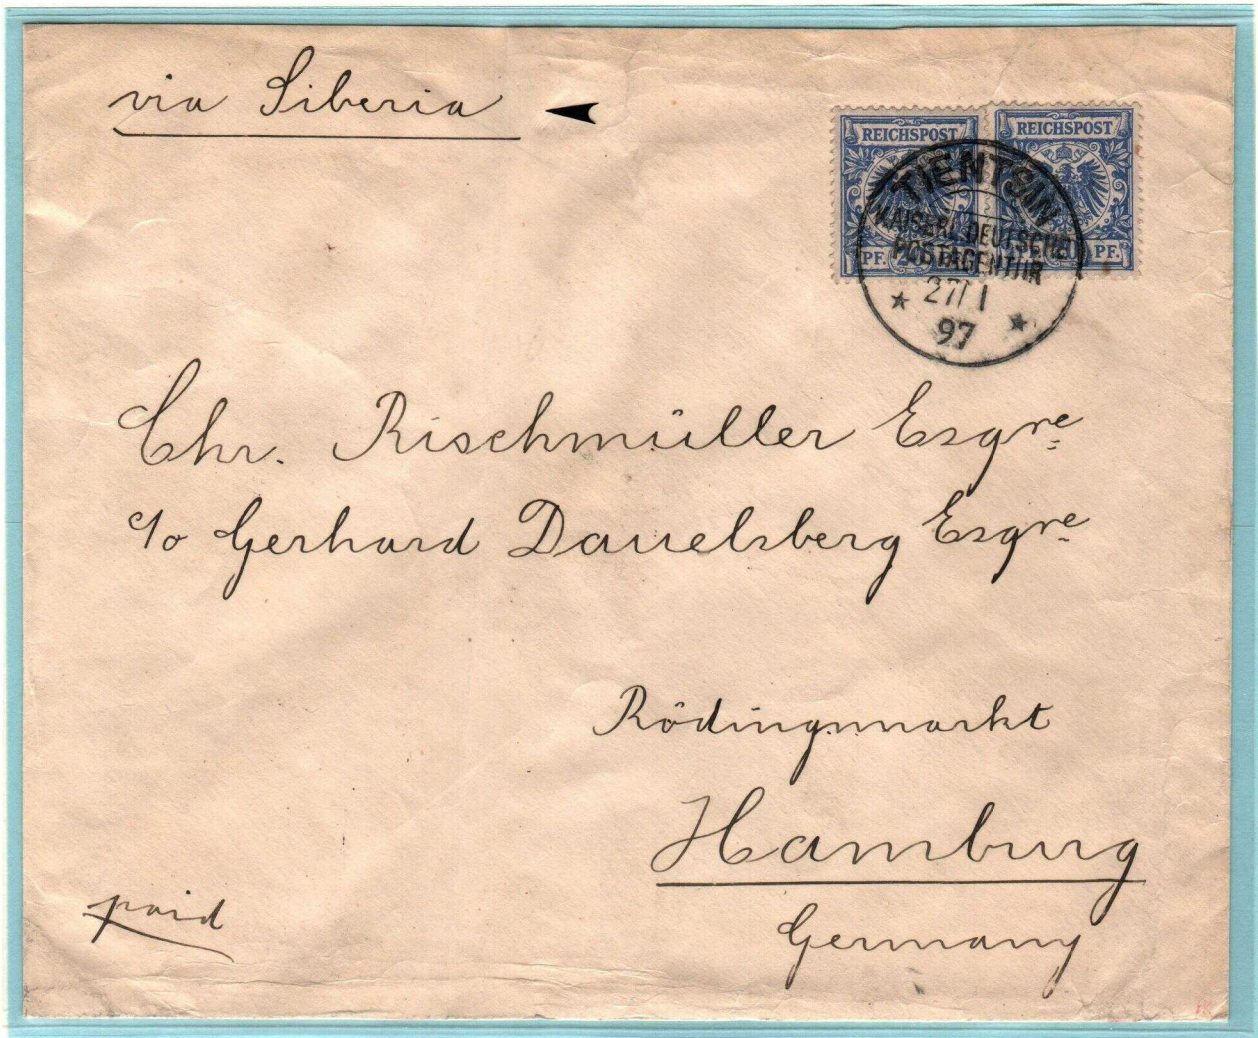 via Siberia
REICHSPOST REICHSPOST
PF. 20 20 PF.
TIENTSIN
KAISERL. DEUTSCHE
POSTAGENTUR
27/1
97
Chr. Rischmüller Esqre
c/o Gerhard Dauelsberg Esqre
Rödingsmarkt
Hamburg
Germany
paid